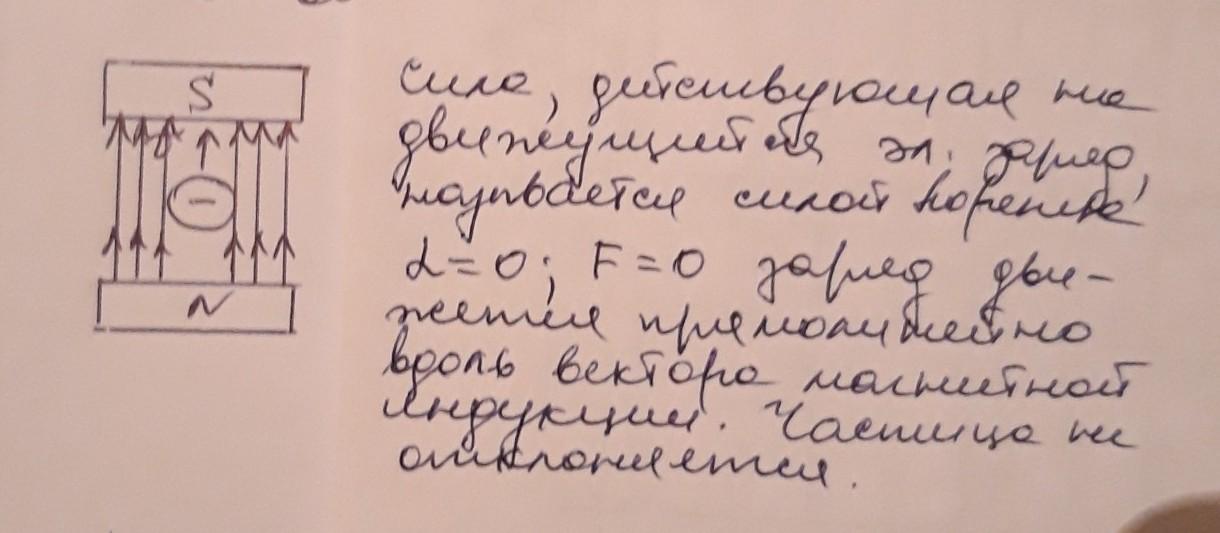 S
N
сила, действующая на
движущийся эл. заряд,
называется силой Лоренца
α=0; F=0 заряд дви-
жется прямолинейно
вдоль вектора магнитной
индукции. Частица не
отклоняется.